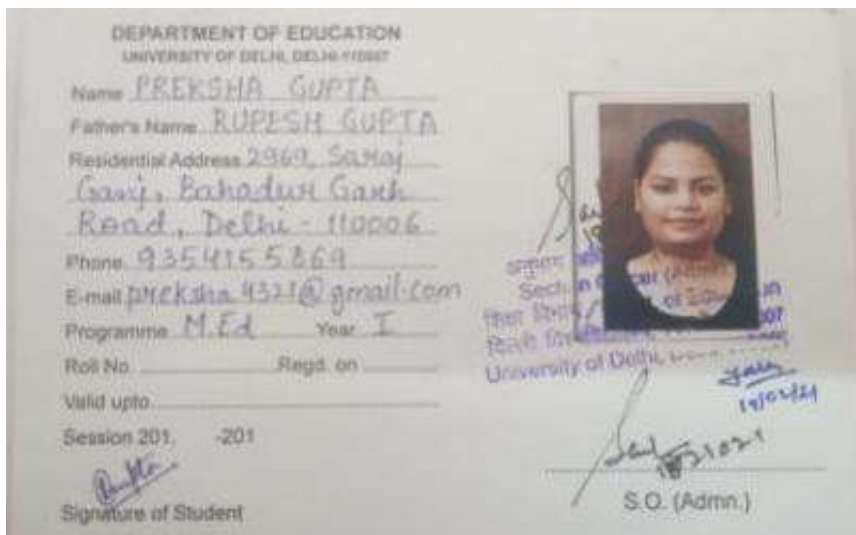 DEPARTMENT OF EDUCATION
UNIVERSITY OF DELHI, DELHI-110007
Name PREKSHA GUPTA
Father's Name RUPESH GUPTA
Residential Address 2969, Saraj
Ganj, Bahadur Garh
Road, Delhi - 110006
Phone 9354155869
E-mail preksha4321@gmail.com
Programme M.Ed Year I
Roll No. Regd. on
Valid upto
Session 201, -201
Signature of Student
अनुभाग
Section (Admn.)
शिक्षा of Education
University of Delhi,
19/02/21
S.O. (Admn.)